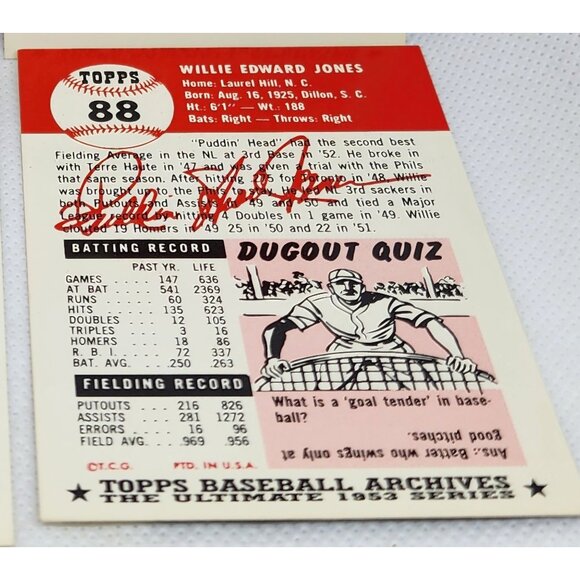 TOPPS
88
WILLIE EDWARD JONES
Home: Laurel Hill, N. C.
Born: Aug. 16, 1925, Dillon, S. C.
Ht.: 6'1" — Wt.: 188
Bats: Right - Throws: Right
"Puddin' Head" had the second best
Fielding Average in the NL at 3rd Base in '52. He broke in
with Terre Haute in '47 and was given a trial with the Phils
that same season. After hitting .275 for Toronto in '48, Willie
was brought to the Phils to stay. He led NL 3rd sackers in
both Putouts and Assists in '49 and '50 and tied a Major
league record by hitting 4 Doubles in 1 game in '49. Willie
clouted 19 Homers in '49 25 in '50 and 22 in '51.
BATTING RECORD
PAST YR. LIFE
GAMES 147 636
AT BAT 541 2369
RUNS 60 324
HITS 135 623
DOUBLES 12 105
TRIPLES 3 16
HOMERS 18 86
R. B. I. 72 337
BAT. AVG. .250 .263
FIELDING RECORD
PUTOUTS 216 826
ASSISTS 281 1272
ERRORS 16 96
FIELD AVG. .969 .956
©T.C.G. PTD. IN U.S.A.
DUGOUT QUIZ
What is a 'goal tender' in base-
ball?
Ans.: Batter who swings only at
good pitches.
★ TOPPS BASEBALL ARCHIVES ★
THE ULTIMATE 1953 SERIES